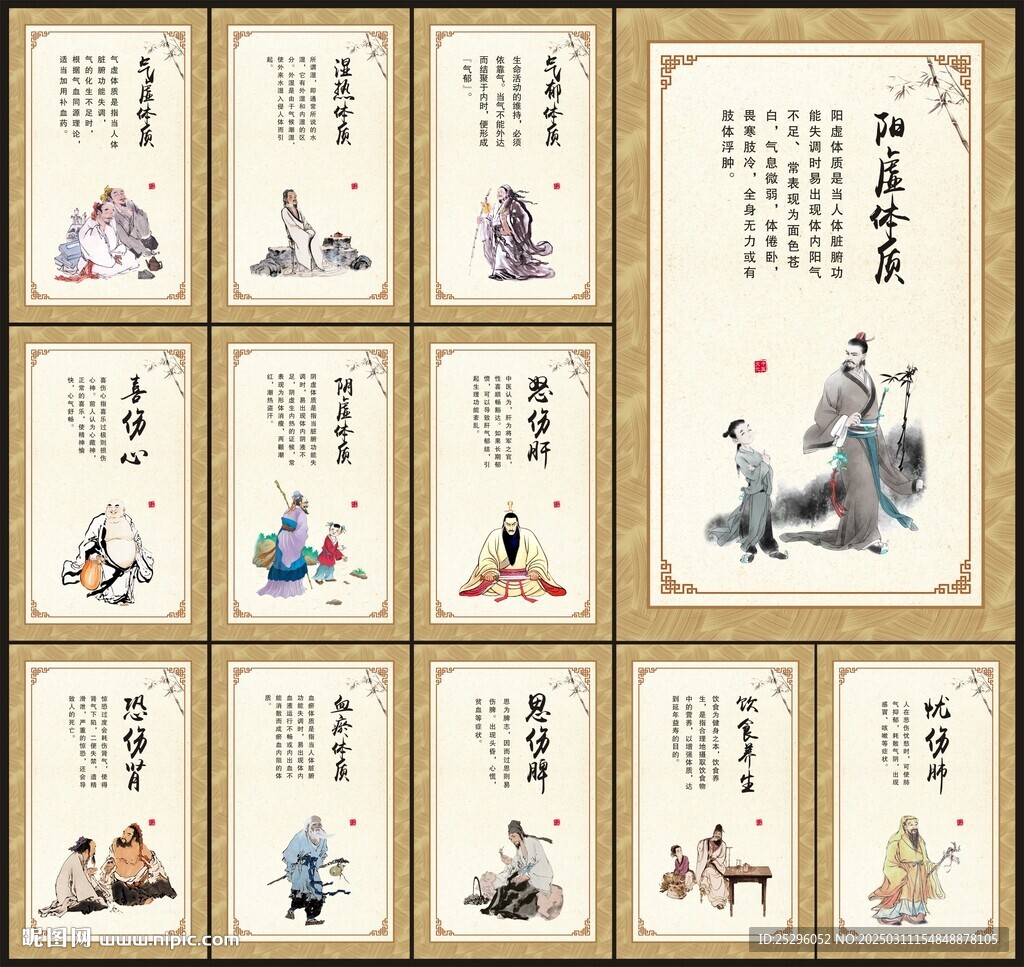 气虚体质
气虚体质是指当人体
脏腑功能失调，
气的化生不足时，
根据气血同源理论，
适当加用补血药。
湿热体质
所谓湿，即通常所说的水
湿，它有外湿和内湿的区
分。外湿是由于气候潮湿，
使外来水湿入侵人体而引
起。
气郁体质
生命活动的维持，必须
依靠气。当气不能外达
而结聚于内时，便形成
『气郁』。
阳虚体质
阳虚体质是当人体脏腑功
能失调时易出现体内阳气
不足、常表现为面色苍
白，气息微弱，体倦卧，
畏寒肢冷，全身无力或有
肢体浮肿。
喜伤心
喜伤心指喜乐过极则损伤
心神。前人认为心藏神，
正常的喜乐，使精神愉
快，心气舒畅。
阴虚体质
阴虚体质是指当脏腑功能失
调时，易出现体内阴液不
足，阴虚生内热的证候，常
表现为形体消瘦，两颧潮
红，潮热盗汗。
怒伤肝
中医认为，肝为将军之官，
性喜顺畅豁达。如果长期郁
愤，可以导致肝气郁结，引
起生理功能紊乱。
恐伤肾
惊恐过度会耗伤肾气，使得
肾气下陷，二便失禁，遗精
滑泄，严重的惊恐，还会导
致人的死亡。
血瘀体质
血瘀体质是指当人体脏腑
功能失调时，易出现体内
血液运行不畅或内出血不
能消散而成瘀血内阻的体
质。
思伤脾
思为脾志，因而过思则易
伤脾。出现头昏，心慌，
贫血等症状。
饮食养生
饮食为健身之本，饮食养
生，是指合理地摄取饮食物
中的营养，以增强体质，达
到延年益寿的目的。
忧伤肺
人在悲伤忧愁时，可使肺
气抑郁，耗散气阴，出现
感冒、咳嗽等症状。
昵图网 www.nipic.com
ID:25296052 NO:20250311154848878105